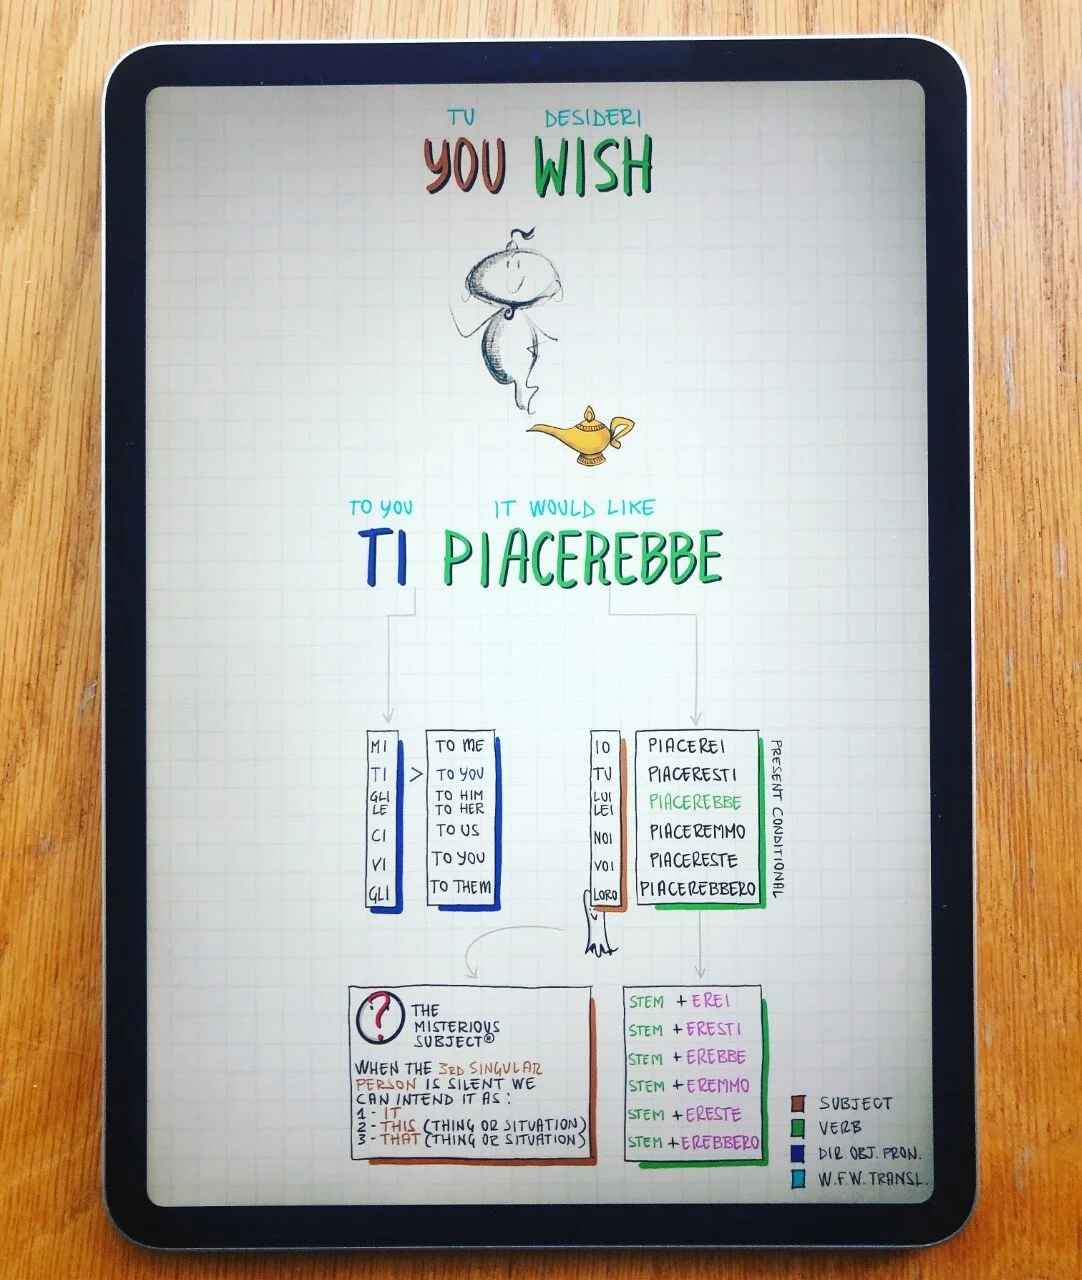 TU DESIDERI
YOU WISH
TO YOU IT WOULD LIKE
TI PIACEREBBE
MI
TI
GLI
LE
CI
VI
GLI
>
TO ME
TO YOU
TO HIM
TO HER
TO US
TO YOU
TO THEM
IO
TU
LUI
LEI
NOI
VOI
LORO
PIACEREI
PIACERESTI
PIACEREBBE
PIACEREMMO
PIACERESTE
PIACEREBBERO
PRESENT CONDITIONAL
?
THE
MISTERIOUS
SUBJECT®
WHEN THE 3RD SINGULAR
PERSON IS SILENT WE
CAN INTEND IT AS:
1 - IT
2 - THIS (THING OR SITUATION)
3 - THAT (THING OR SITUATION)
STEM + EREI
STEM + ERESTI
STEM + EREBBE
STEM + EREMMO
STEM + ERESTE
STEM + EREBBERO
SUBJECT
VERB
DIR. OBJ. PRON.
W.F.W. TRANSL.